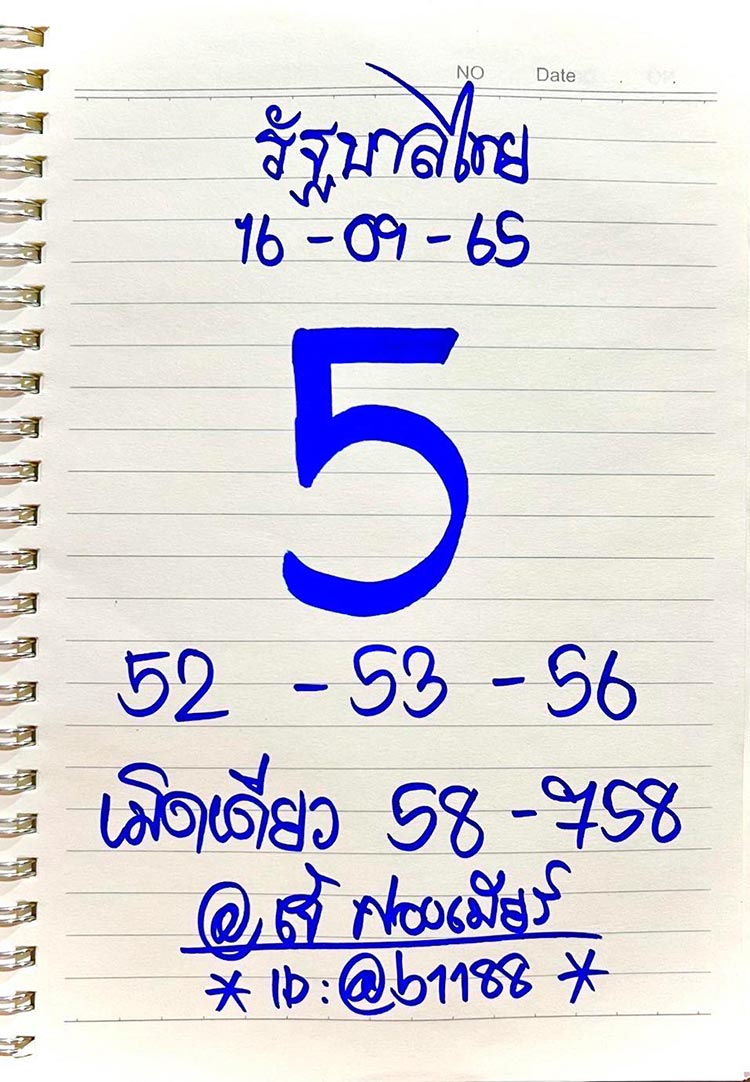 NO Date . .
รัฐบาลไทย
16 - 09 - 65
5
52 - 53 - 56
เม็ดเดียว 58 - 758
@ เจ๊ ฟองเบียร์
* ID : @b1188 *